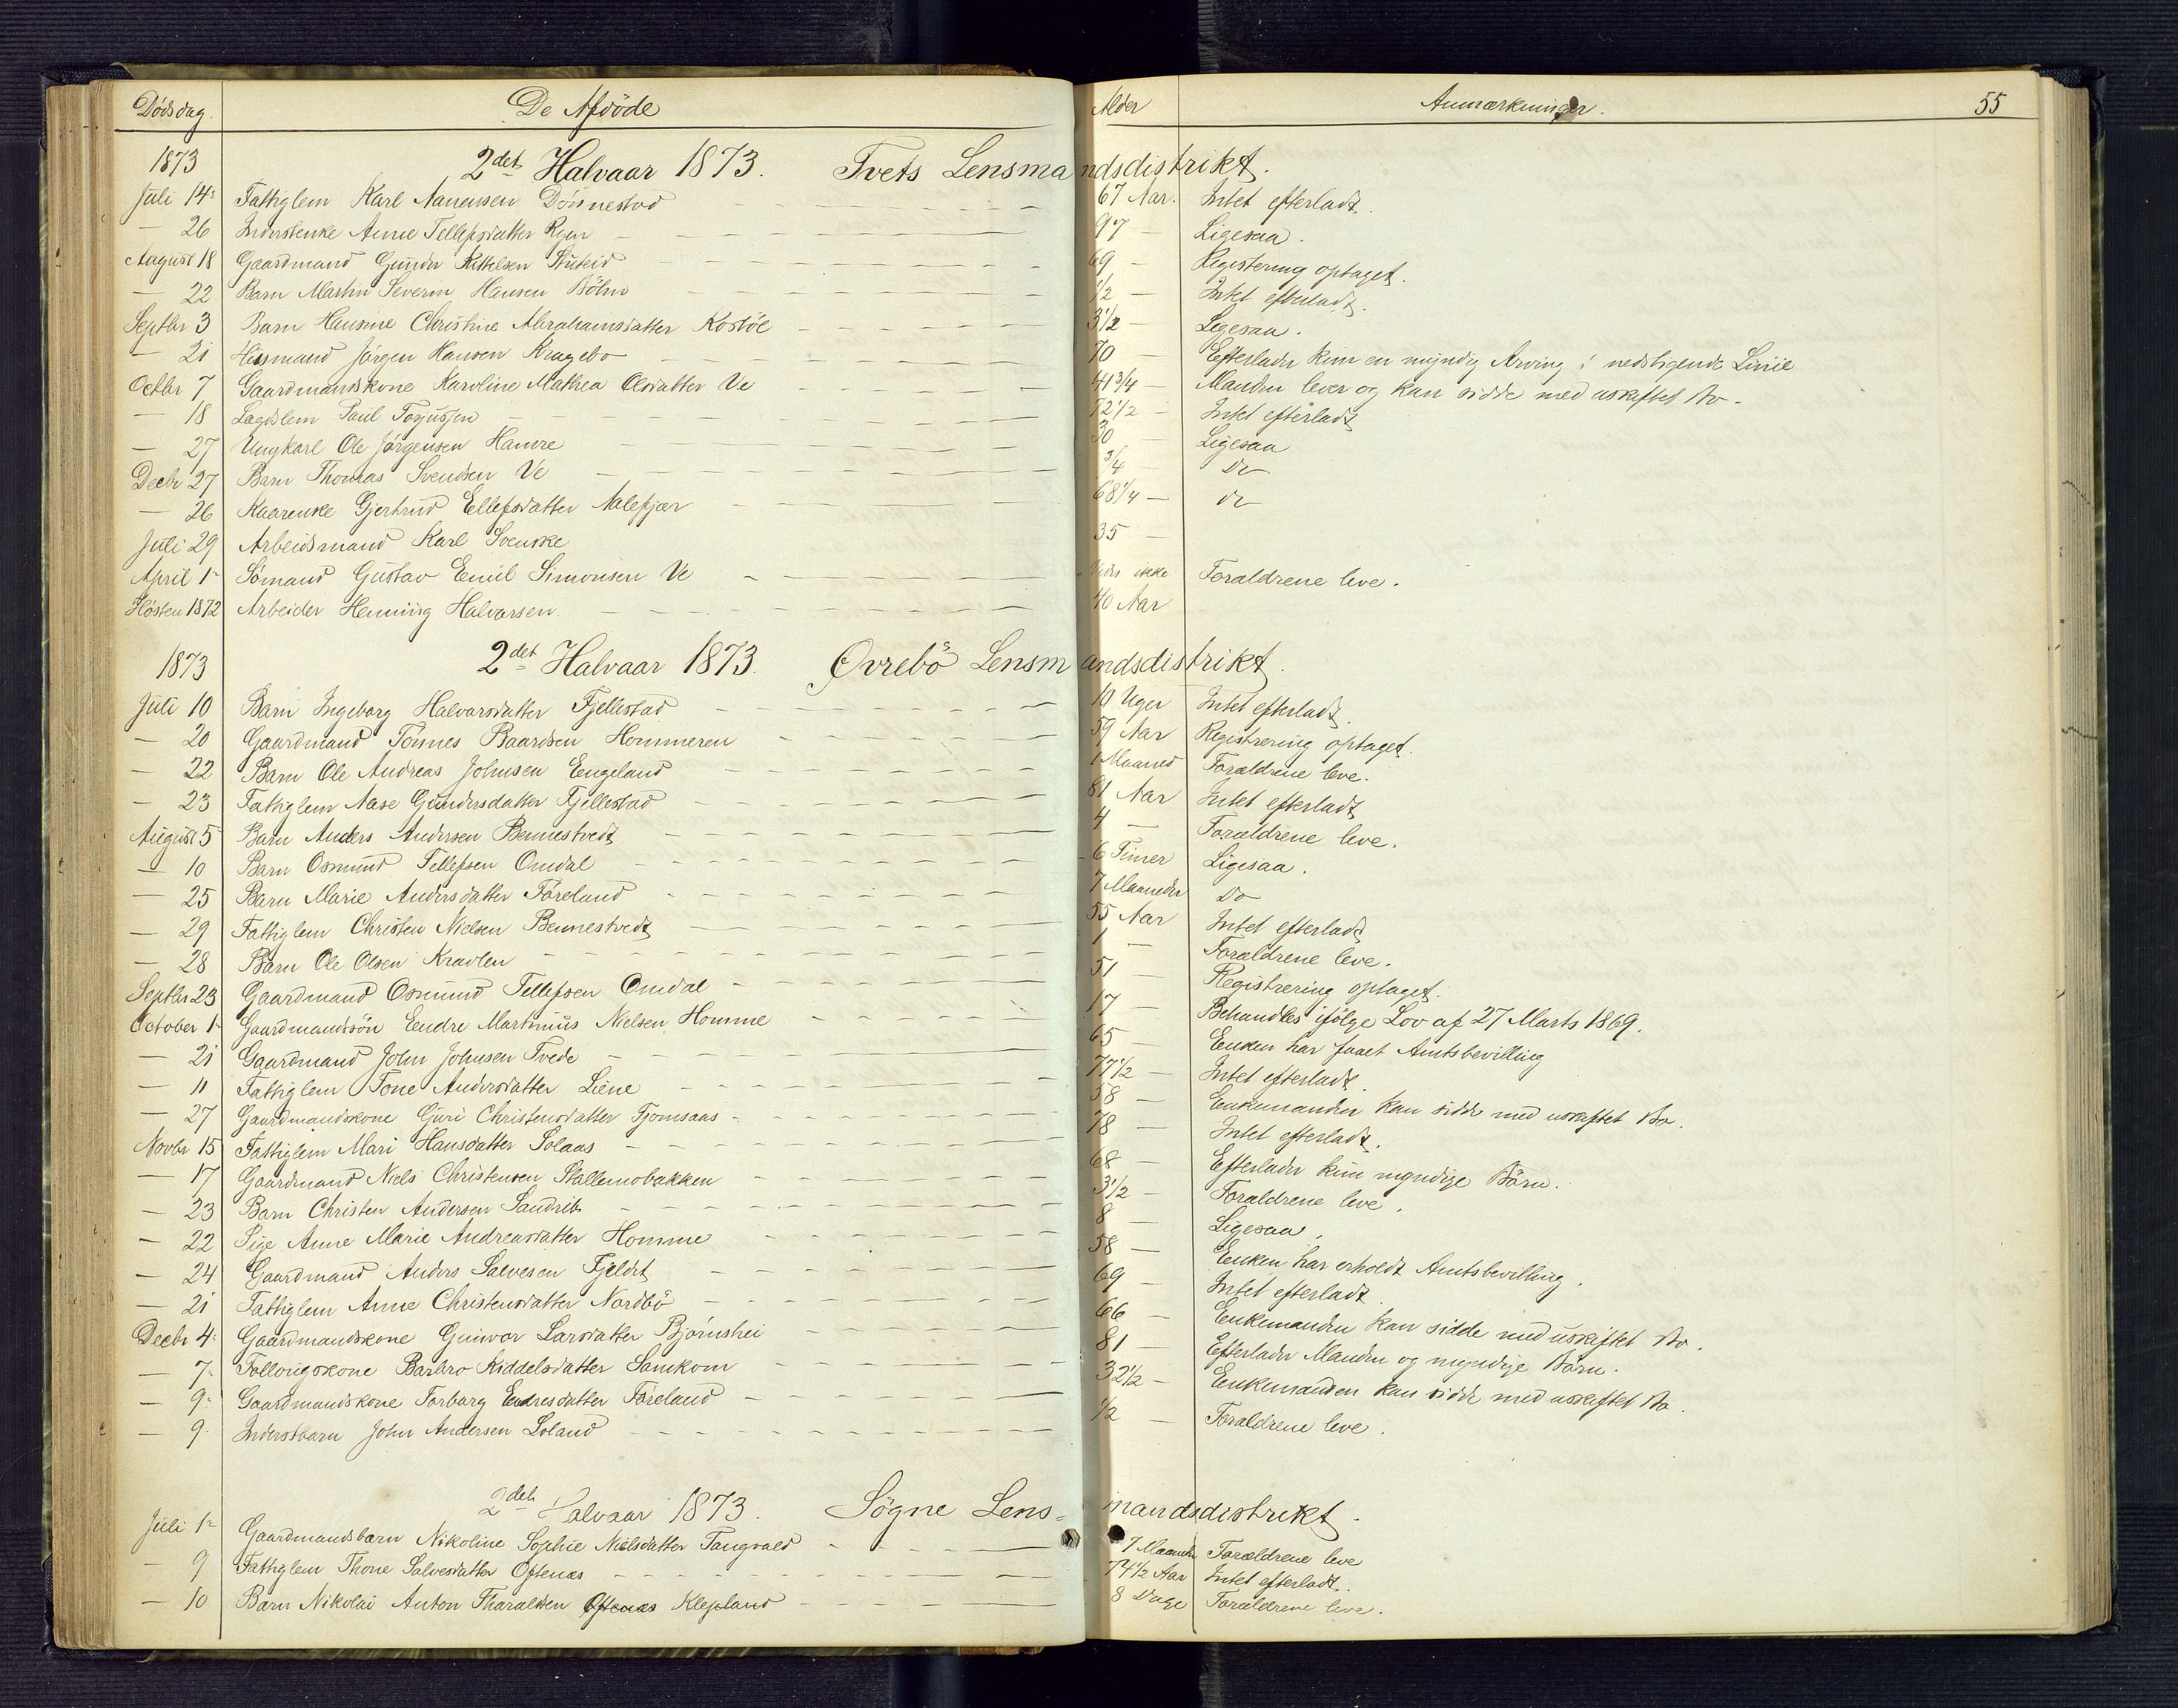 Dødsdag. De Afdöde Alder Anmærkninger. 55
1873 2det Halvaar 1873. Tvets Lensmandsdistrikt.
Juli 14 Fattiglem Karl Aanensen Dönnestad 67 Aar. Intet efterladt.
— 26 Inderstenke Anne Tellefsdatter Ryen 97 — Ligesaa.
August 18 Gaardmand Gunder Kittelsen Stuteid 69 — Registering optaget.
— 22 Barn Martin Severin Hansen Bölm 1/2 — Intet efterladt.
Septbr 3 Barn Hansine Christine Abrahamsdatter Kostöl 3 1/2 — Ligesaa.
— 21 Huusmand Jörgen Hansen Kragebo 70 Efterlader kun en myndig Arving i nedstigende Linie
Octbr 7 Gaardmandskone Karoline Mathea Olsdatter Ve 41 3/4 — Manden lever og kan sidde med uskiftet Bo.
— 18 Lægdslem Paul Torjussen 72 1/2 — Intet efterladt
— 27 Ungkarl Ole Jörgensen Hamre 30 — Ligesaa
Decbr 27 Barn Thomas Svendsen Ve 3/4 Do
— 26 Kaarenke Gjertrud Ellefsdatter Aalefjær 68 1/4 — do
Juli 29 Arbeidsmand Karl Svenske 35 —
April 1 Sömand Gustav Emil Simonsen Ve Vides ikke Forældrene leve.
Hösten 1872 Arbeider Henning Halvorsen 40 Aar
1873 2det Halvaar 1873. Øvrebö Lensmandsdistrikt.
Juli 10 Barn Ingeborg Halvorsdatter Fjellestad 10 Uger Intet efterladt.
— 20 Gaardmand Tönnes Baardsen Hommeren 59 Aar Registrering optaget.
— 22 Barn Ole Andreas Johnsen Engeland 1 Maaned Forældrene leve.
— 23 Fattiglem Aase Gundersdatter Fjellestad 81 Aar Intet efterladt
August 5 Barn Anders Andersen Bennestvedt 4 — Forældrene leve.
— 10 Barn Osmund Tellefsen Omdal 6 Timer Ligesaa.
— 25 Barn Marie Andersdatter Föreland 7 Maaneder Do
— 29 Fattiglem Christen Nielsen Bennestvedt 55 Aar Intet efterladt
— 28 Barn Ole Olsen Kravlen 1 — Forældrene leve.
Septbr 23 Gaardmand Osmund Tellefsen Omdal 51 — Registrering optaget.
October 1 Gaardmandssön Endre Martinius Nielsen Homme 17 — Behandles ifölge Lov af 27 Marts 1869.
— 21 Gaardmand John Johnsen Tvede 65 — Enken har faaet Amtsbevilling
— 11 Fattiglem Tone Andersdatter Liene 77 1/2 — Intet efterladt.
— 27 Gaardmandskone Guri Christensdatter Fjomsaas 58 — Enkemanden kan sidde med uskiftet Bo.
Novbr 15 Fattiglem Mari Hansdatter Solaas 78 — Intet efterladt.
— 17 Gaardmand Niels Christensen Stallemobakken 68 — Efterlader kun myndige Börn.
— 23 Barn Christen Andersen Sandrib 3 1/2 — Forældrene leve.
— 22 Pige Anne Marie Andreasdatter Homme 8 — Ligesaa.
— 24 Gaardmand Anders Salvesen Fjeldet 58 — Enken har erholdt Amtsbevilling.
— 21 Fattiglem Anne Christensdatter Nordbö 69 — Intet efterladt.
Decbr 4 Gaardmandskone Gunvor Larsdatter Björnshei 66 — Enkemanden kan sidde med uskiftet Bo.
— 7 Follougskone Barbro Kiddelsdatter Samkom 81 — Efterlader Manden og myndige Börn.
— 9 Gaardmandskone Torborg Endresdatter Föreland 32 1/2 — Enkemanden kan sidde med uskiftet Bo.
— 9 Inderstbarn John Andersen Loland 1/2 — Forældrene leve.
2det Halvaar 1873. Sögne Lens=mandsdistrikt.
Juli 1 Gaardmandsbarn Nikoline Sophie Nielsdatter Tangvald 7 Maaneder Forældrene leve
— 9 Fattiglem Thone Salvesdatter Oftenæs 74 1/2 Aar Intet efterladt.
— 10 Barn Nikolai Anton Tharaldsen Oftenæs Klepland 8 Dage Forældrene leve.